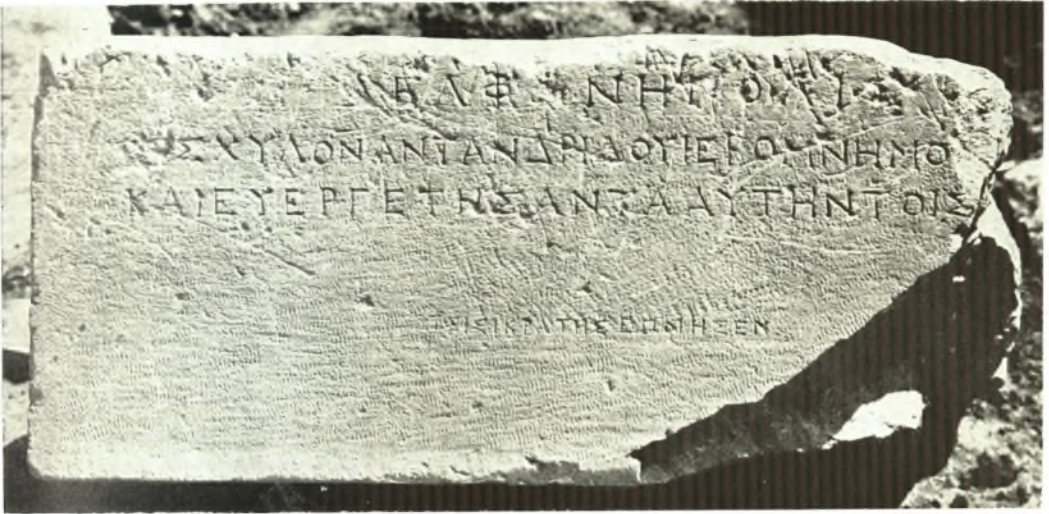 ΔΕΛΦΩΝΗΠΟΛΙΣ
ΑΙΣΧΥΛΟΝΑΝΤΑΝΔΡΙΔΟΥΙΕΡΟΜΝΗΜΟ
ΚΑΙΕΥΕΡΓΕΤΗΣΑΝΤΑΑΥΤΗΝΤΟΙΣ
ΤΕΙΣΙΚΡΑΤΗΣΕΠΟΙΗΣΕΝ